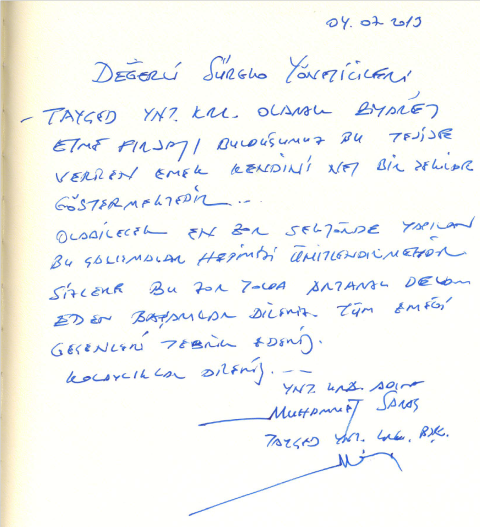 04.07.2013
DEĞERLİ SÜREKO YÖNETİCİLERİ
- TAYGED YNT. KRL. OLARAK ZİYARET
ETME FIRSATI BULDUĞUMUZ BU TESİSDE
VERİLEN EMEK KENDİNİ NET BİR ŞEKİLDE
GÖSTERMEKTEDİR...
OLABİLECEK EN ZOR SEKTÖRDE YAPILAN
BU ÇALIŞMALAR HEPİMİZİ ÜMİTLENDİRMEKTEDİR
SİZLERE BU ZOR YOLDA ARTARAK DEVAM
EDEN BAŞARILAR DİLERİZ. TÜM EMEĞİ
GEÇENLERİ TEBRİK EDERİZ.
KOLAYLIKLAR DİLERİZ.---
YNT. KRL. ADINA
MUHAMMET SARAÇ
TAYGED YNT. KRL. BŞK.